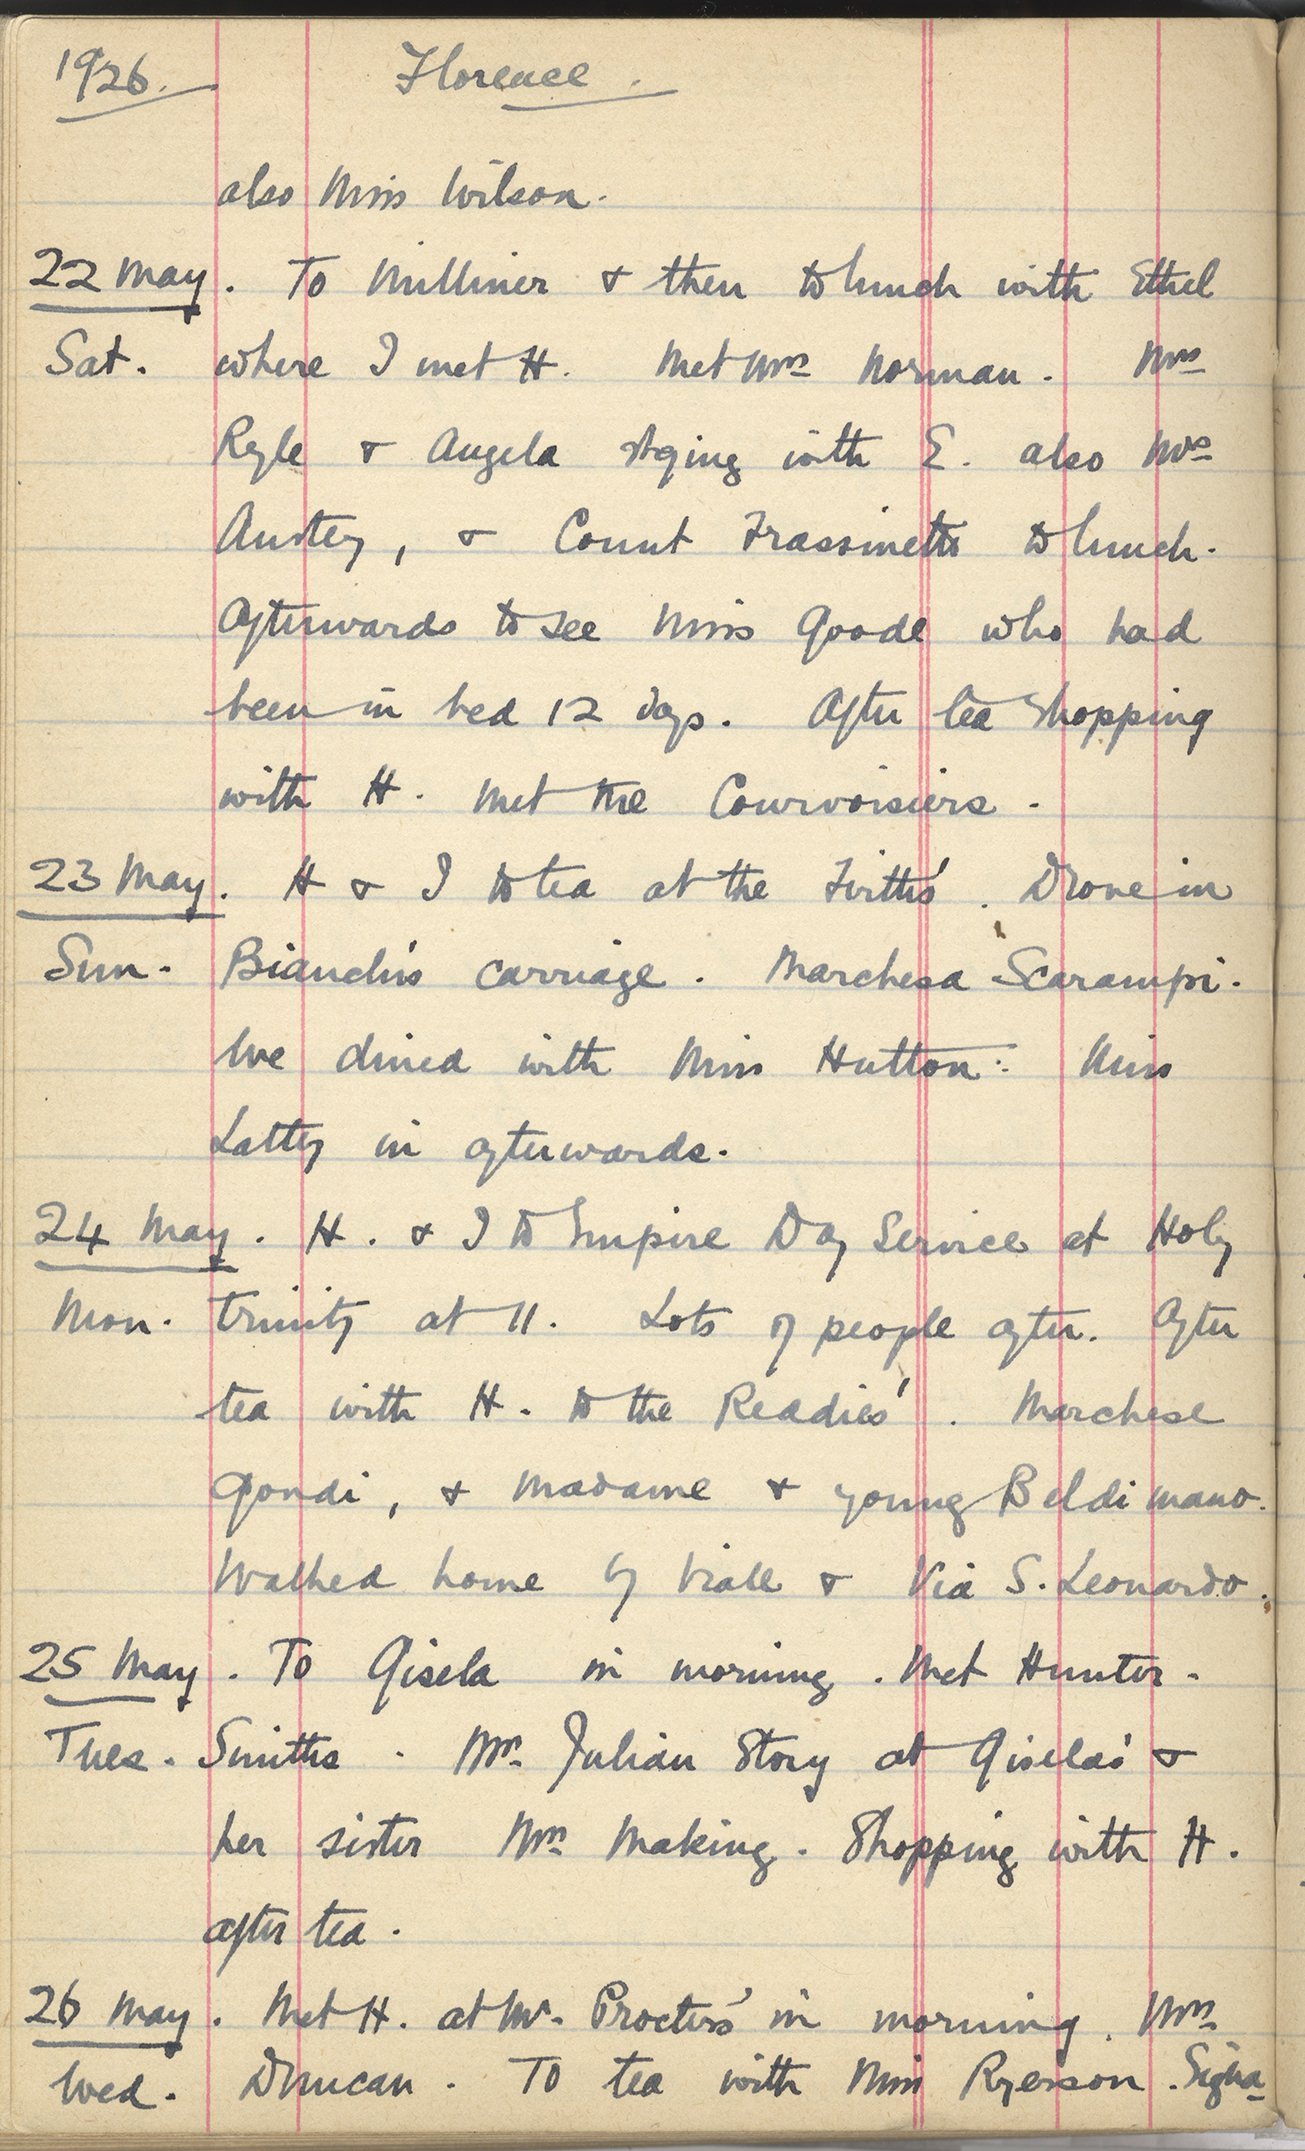 1926. Florence.
also Miss Wilson.
22 May. To Milliner & then to lunch with Ethel
Sat. where I met H. Met Mrs Norman. Mrs
Ryle & Angela staying with E. also Mrs
Anstey, & Count Frassinetto to lunch.
Afterwards to see Miss Goode who had
been in bed 12 days. After tea shopping
with H. Met the Courvoisiers.
23 May. H & I to tea at the Firths'. Drove in
Sun. Bianchi's carriage. Marchesa Scarampi.
We dined with Miss Hutton: Miss
Lattey in afterwards.
24 May. H. & I to Empire Day Service at Holy
Mon. Trinity at 11. Lots of people after. After
tea with H. to the Readies'. Marchese
Gondi, & Madame & young Beldimano.
Walked home by Viale & Via S. Leonardo.
25 May. To Gisela in morning. Met Hunter-
Tues. Smiths. Mrs Julian Story at Gisela's &
her sister Mrs Making. Shopping with H.
after tea.
26 May. Met H. at Mr. Procter's in morning. Mrs
Wed. Duncan. To tea with Miss Ryerson. Signa